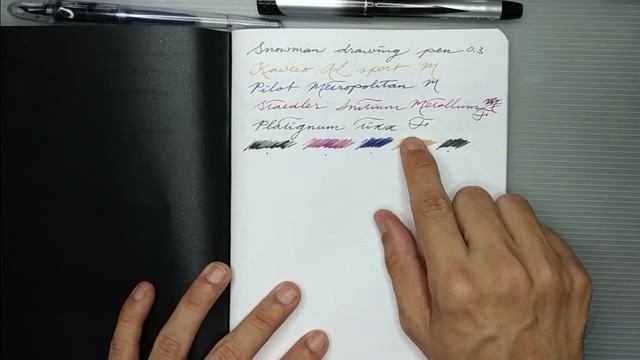 Snowman drawing pen 0.3
Kaweco AL sport M
Pilot Metropolitan M
Staedler Initium Metallum F
Platignum Tixx F